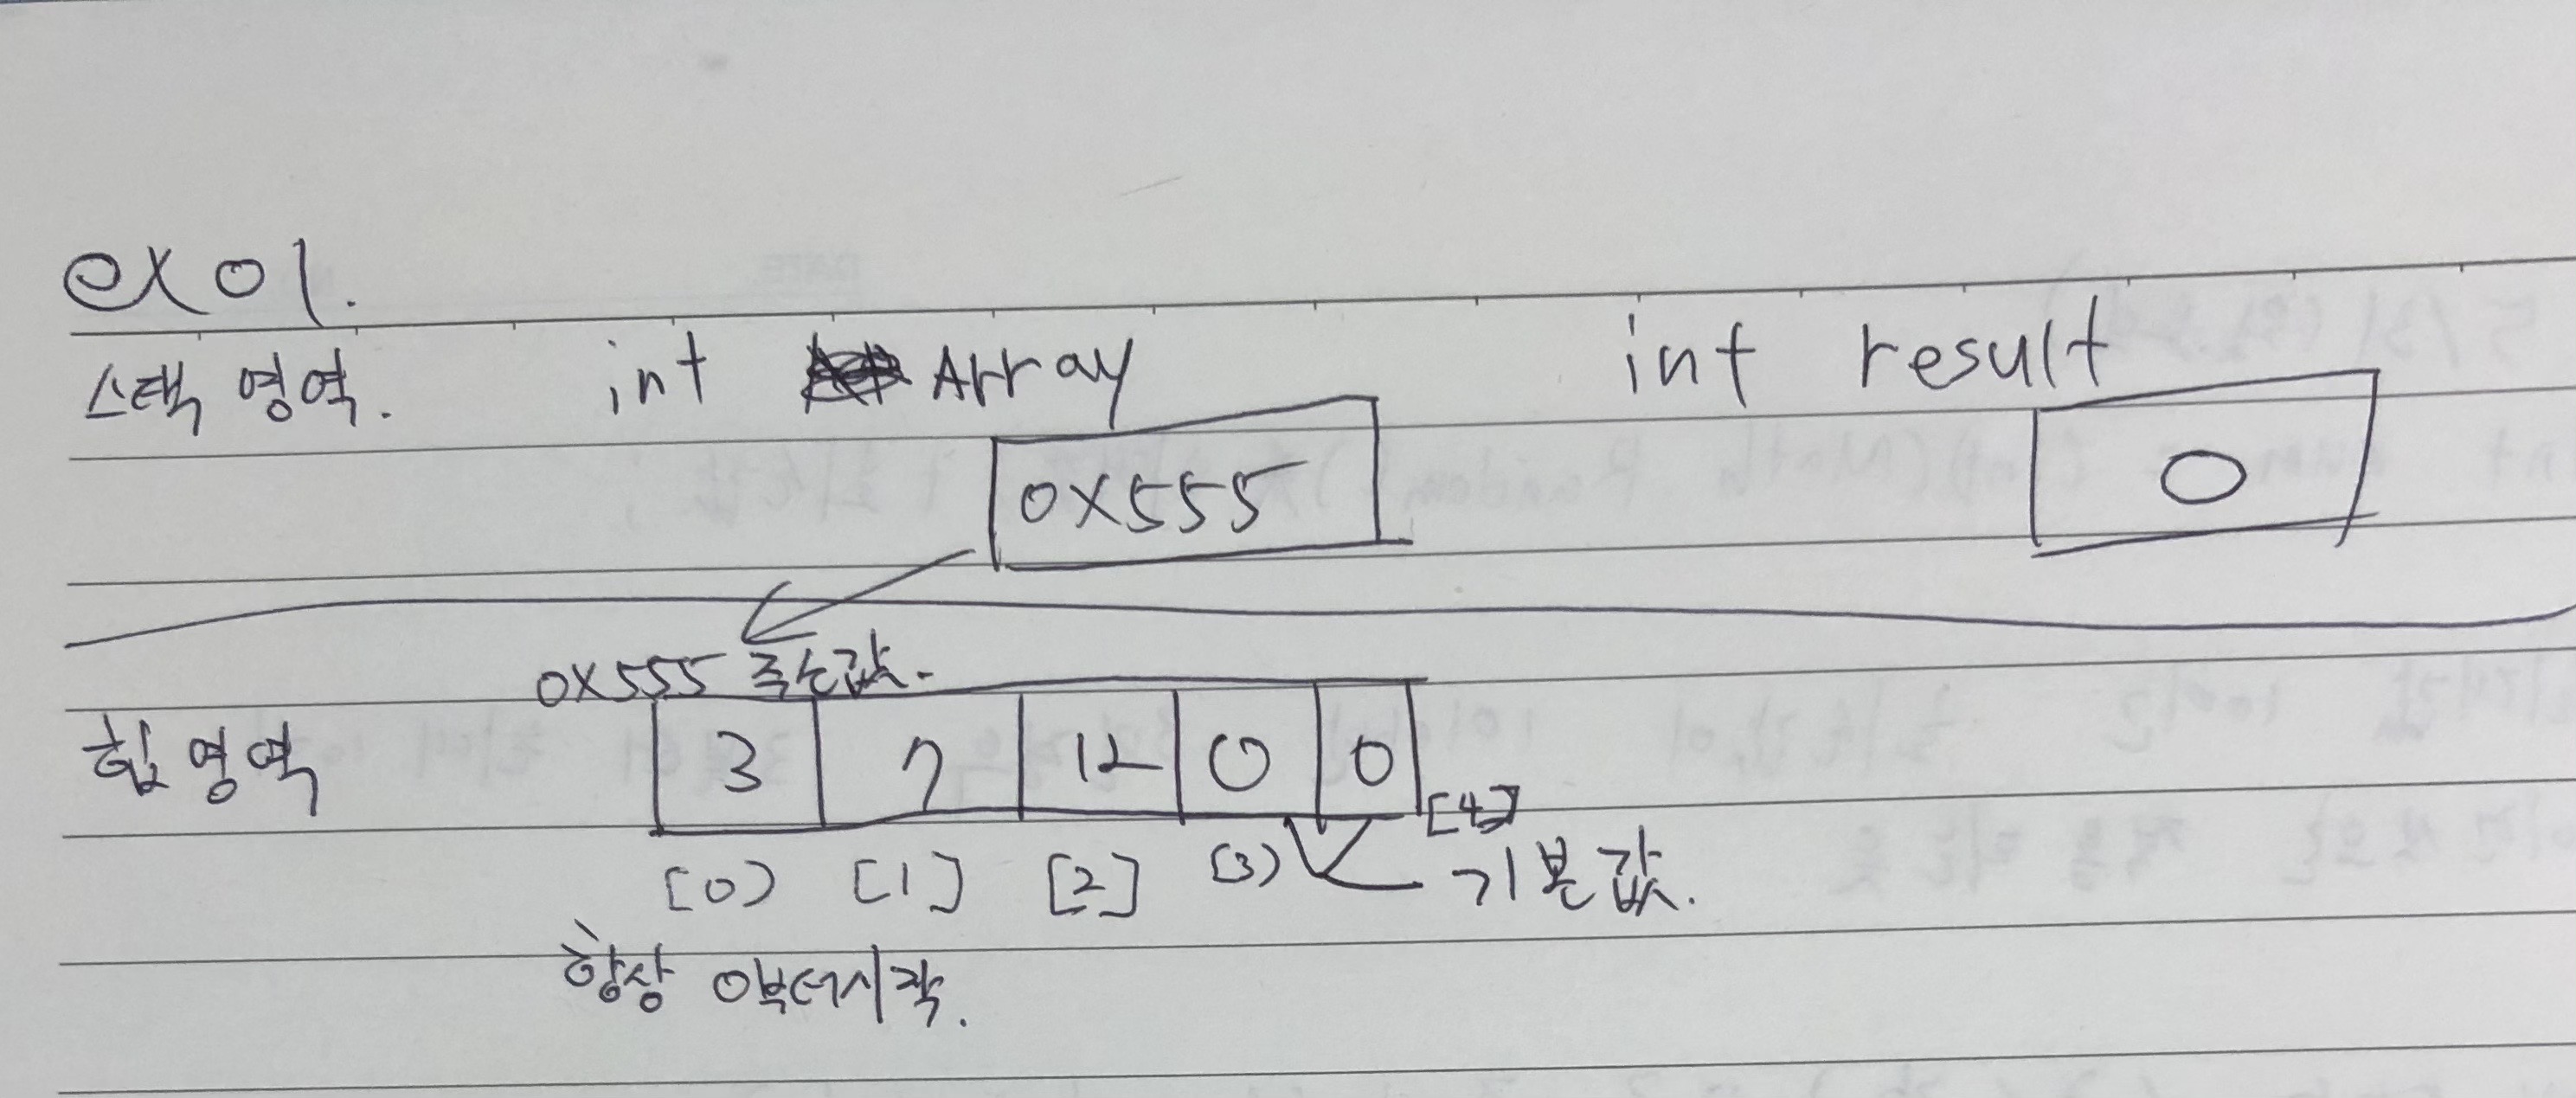 ex 01.
스택 영역. int Array int result
0X555 0
0X555 주소값.
힙 영역 3 7 12 0 0
[0] [1] [2] [3] [4]
기본값.
항상 0부터시작.